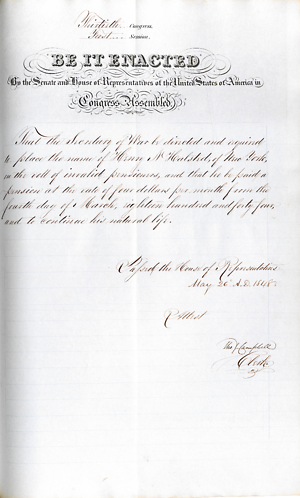 Thirtieth Congress.
First Session.
BE IT ENACTED
By the Senate and House of Representatives of the United States of America in
Congress Assembled,
That the Secretary of War be directed and required
to place the name of Henry N. Halsted, of New York,
on the roll of invalid pensioners, and that he be paid a
pension at the rate of four dollars per month from the
fourth day of March, eighteen hundred and forty four,
and to continue his natural life.
Passed the House of Representatives
May 26 A.D. 1848.
Attest
Tho J. Campbell
Clerk